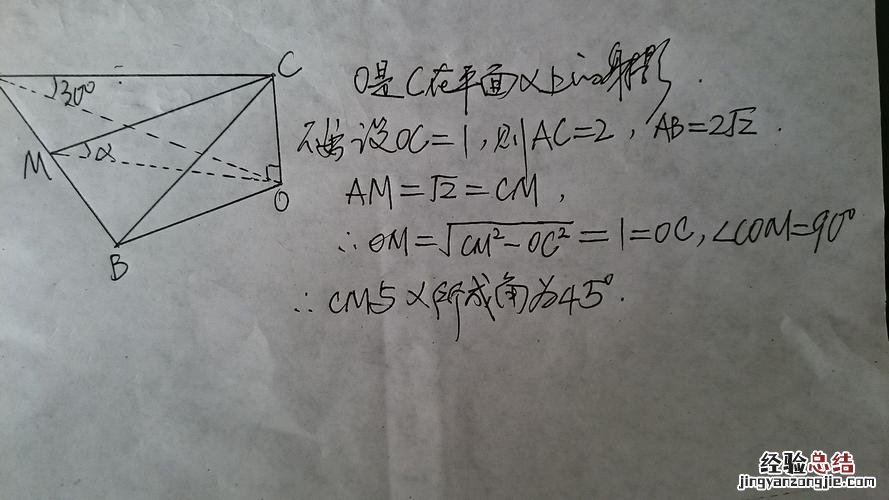 C
30°
M
α
O
B
O是C在平面α上的射影.
不妨设OC=1,则AC=2, AB=2√2.
AM=√2=CM,
∴OM=√CM²-OC²=1=OC,∠COM=90°
∴CM与α所成角为45°.
经验总结
jingyanzongjie.com